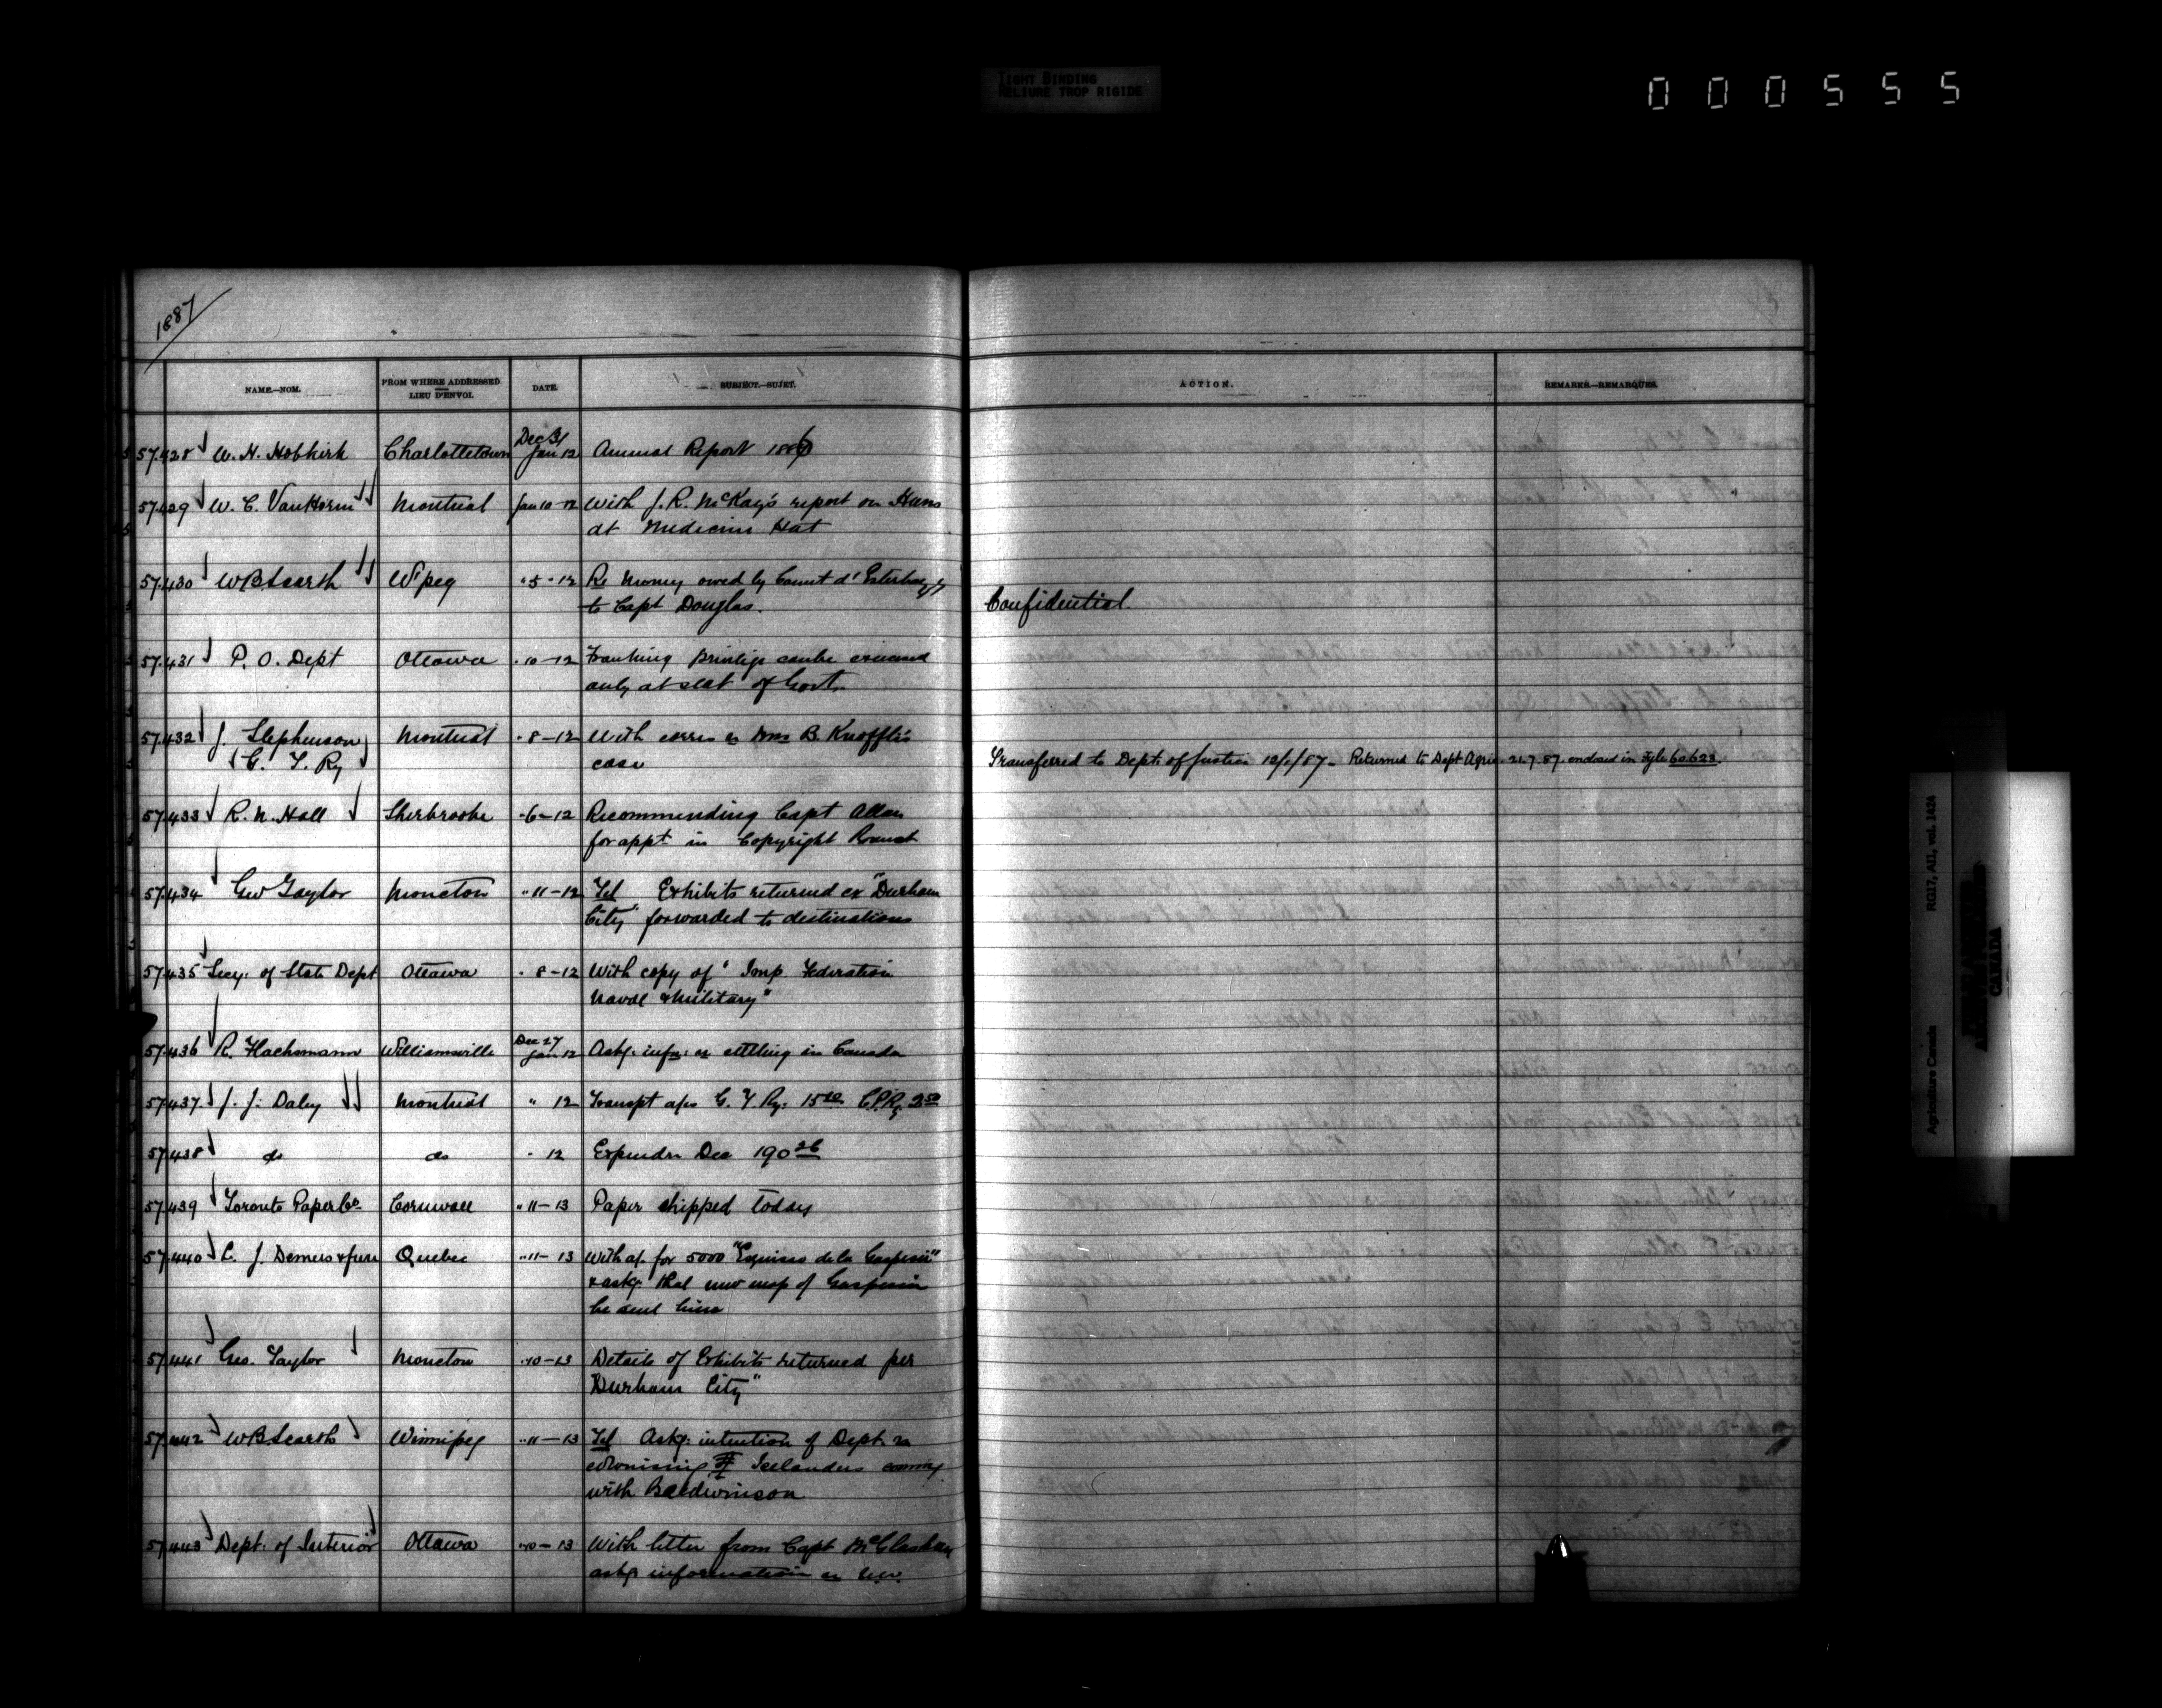 TIGHT BINDING
RELIURE TROP RIGIDE
000555
1887
NAME.—NOM. FROM WHERE ADDRESSED LIEU D'ENVOI. DATE. SUBJECT.—SUJET. ACTION. REMARKS.—REMARQUES.
57.428 W. H. Hobkirk Charlottetown Dec 31 Jan 12 Annual Report 1886
57.429 W. C. VanHorne Montreal Jan 10-12 With J. R. McKay's report on
at Medicine Hat
57.430 W B Scarth W'peg " 5 - 12 Re Money owed by Count d'Esterhazy
to Capt Douglas. Confidential.
57.431 P. O. Dept Ottawa " 10-12 Franking Privilege can be
only at seat of Govt.
57.432 J. Stephenson Montreal " 8-12 With corres re B. Knoffli's
(G. T. Ry) case Transferred to Dept: of Justice 12/1/87 - Returned to Dept Agric 21.7.87. enclosed in fyle 60.623.
57.433 R. N. Hall Sherbrooke " 6-12 Recommending Capt Allan
for appt in Copyright Branch
57.434 Geo Taylor Moncton " 11-12 Tel Exhibits returned ex "Durham
City" forwarded to destinations
57.435 Secy: of State Dept Ottawa " 8-12 With copy of "Imp. Federation
Naval & Military"
57.436 R. Williamsville Dec 27 Jan 12 Askg: infn: re settling in Canada
57.437. J. J. Daley Montreal " 12 Transpt a/cs G. T. Ry: C.P.Ry
57.438 do do " 12 Expendre Dec 190 26
57.439 Toronto Paper Co Cornwall " 11-13 Paper shipped today
57.440 L. J. Demers & frere Quebec " 11-13 With a/. for 5000 "Esquisse de la Gaspesie"
& askg: that new map of Gaspesia
be sent him
57.441 Geo. Taylor Moncton " 10-13 Details of Exhibits returned per
"Durham City"
57.442 W B Scarth Winnipeg " 11-13 Tel Askg: intention of Dept re
colonising of Icelanders coming
with Baldwinson
57.443 Dept: of Interior Ottawa " 10-13 With letter from Capt McGlashan
askg information re N.W.
Agriculture Canada RG17, AII, vol. 1424
CANADA